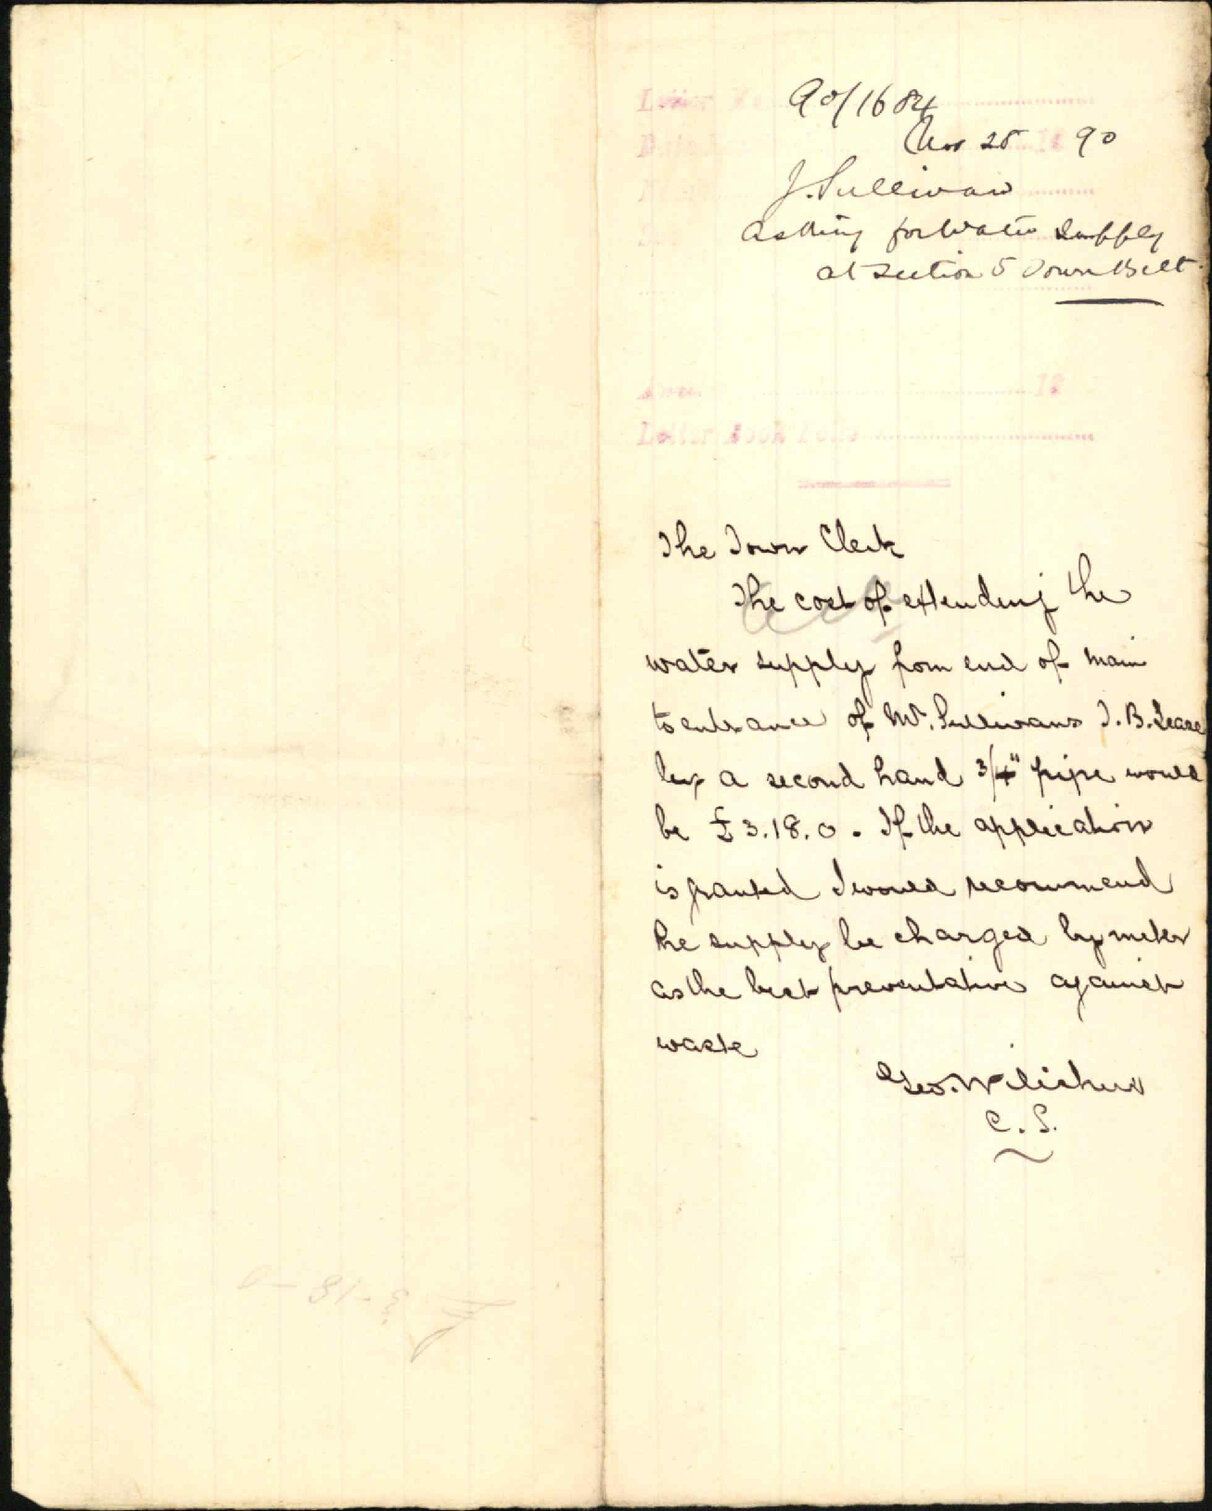 Letter No
90/1684
Nov 25 90
J. Sullivan
asking for Water Supply
at Section 5 Town Belt
18
Letter Book Folio
The Town Clerk
The cost of extending the
water supply from end of main
to entrance of Mr. Sullivans T.B. Lease
by a second hand 3/4" pipe would
be £3.18.0. If the application
is granted I would recommend
the supply be charged by meter
as the best preventative against
waste
Geo. Wiltshire
C.S.
£3-18-0